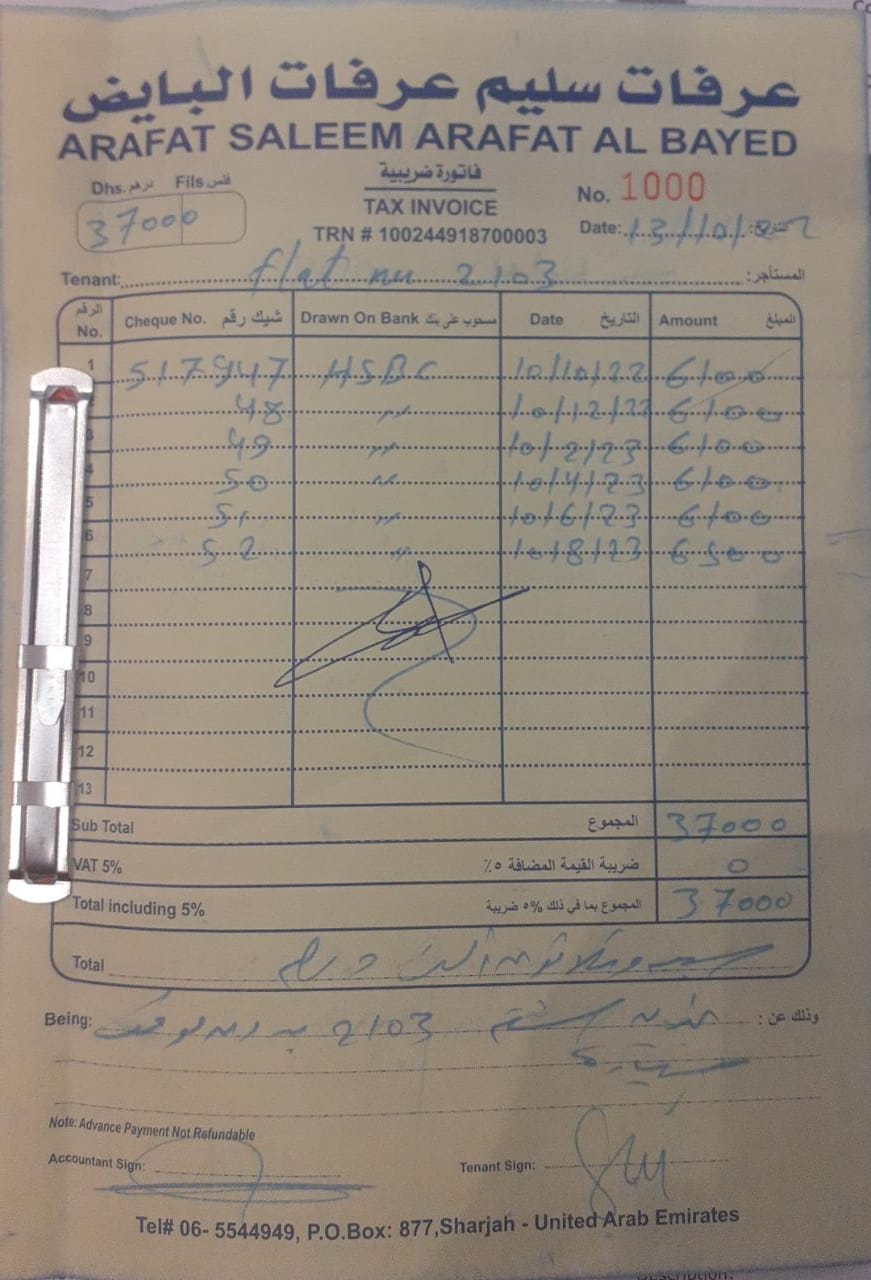 عرفات سليم عرفات البايض
ARAFAT SALEEM ARAFAT AL BAYED
Dhs. درهم Fils فلس
37000
فاتورة ضريبية
TAX INVOICE
TRN # 100244918700003
No. 1000
Date: التاريخ:
Tenant: flat nu 2103 المستأجر:
الرقم No. Cheque No. شيك رقم Drawn On Bank مسحوب على بنك Date التاريخ Amount المبلغ
1 517947 HSBC 10/10/22 6100
48 " 10/12/22 6100
3 49 " 10/2/23 6100
4 50 " 10/4/23 6100
5 51 " 10/6/23 6100
6 52 " 10/8/23 6500
7
8
9
10
11
12
13
Sub Total المجموع 37000
VAT 5% ضريبة القيمة المضافة ٥٪ 0
Total including 5% المجموع بما في ذلك %٥ ضريبة 37000
Total سبعة وثلاثون ألف درهم
Being: 2103 وذلك عن :
Note: Advance Payment Not Refundable
Accountant Sign: Tenant Sign:
Tel# 06- 5544949, P.O.Box: 877,Sharjah - United Arab Emirates